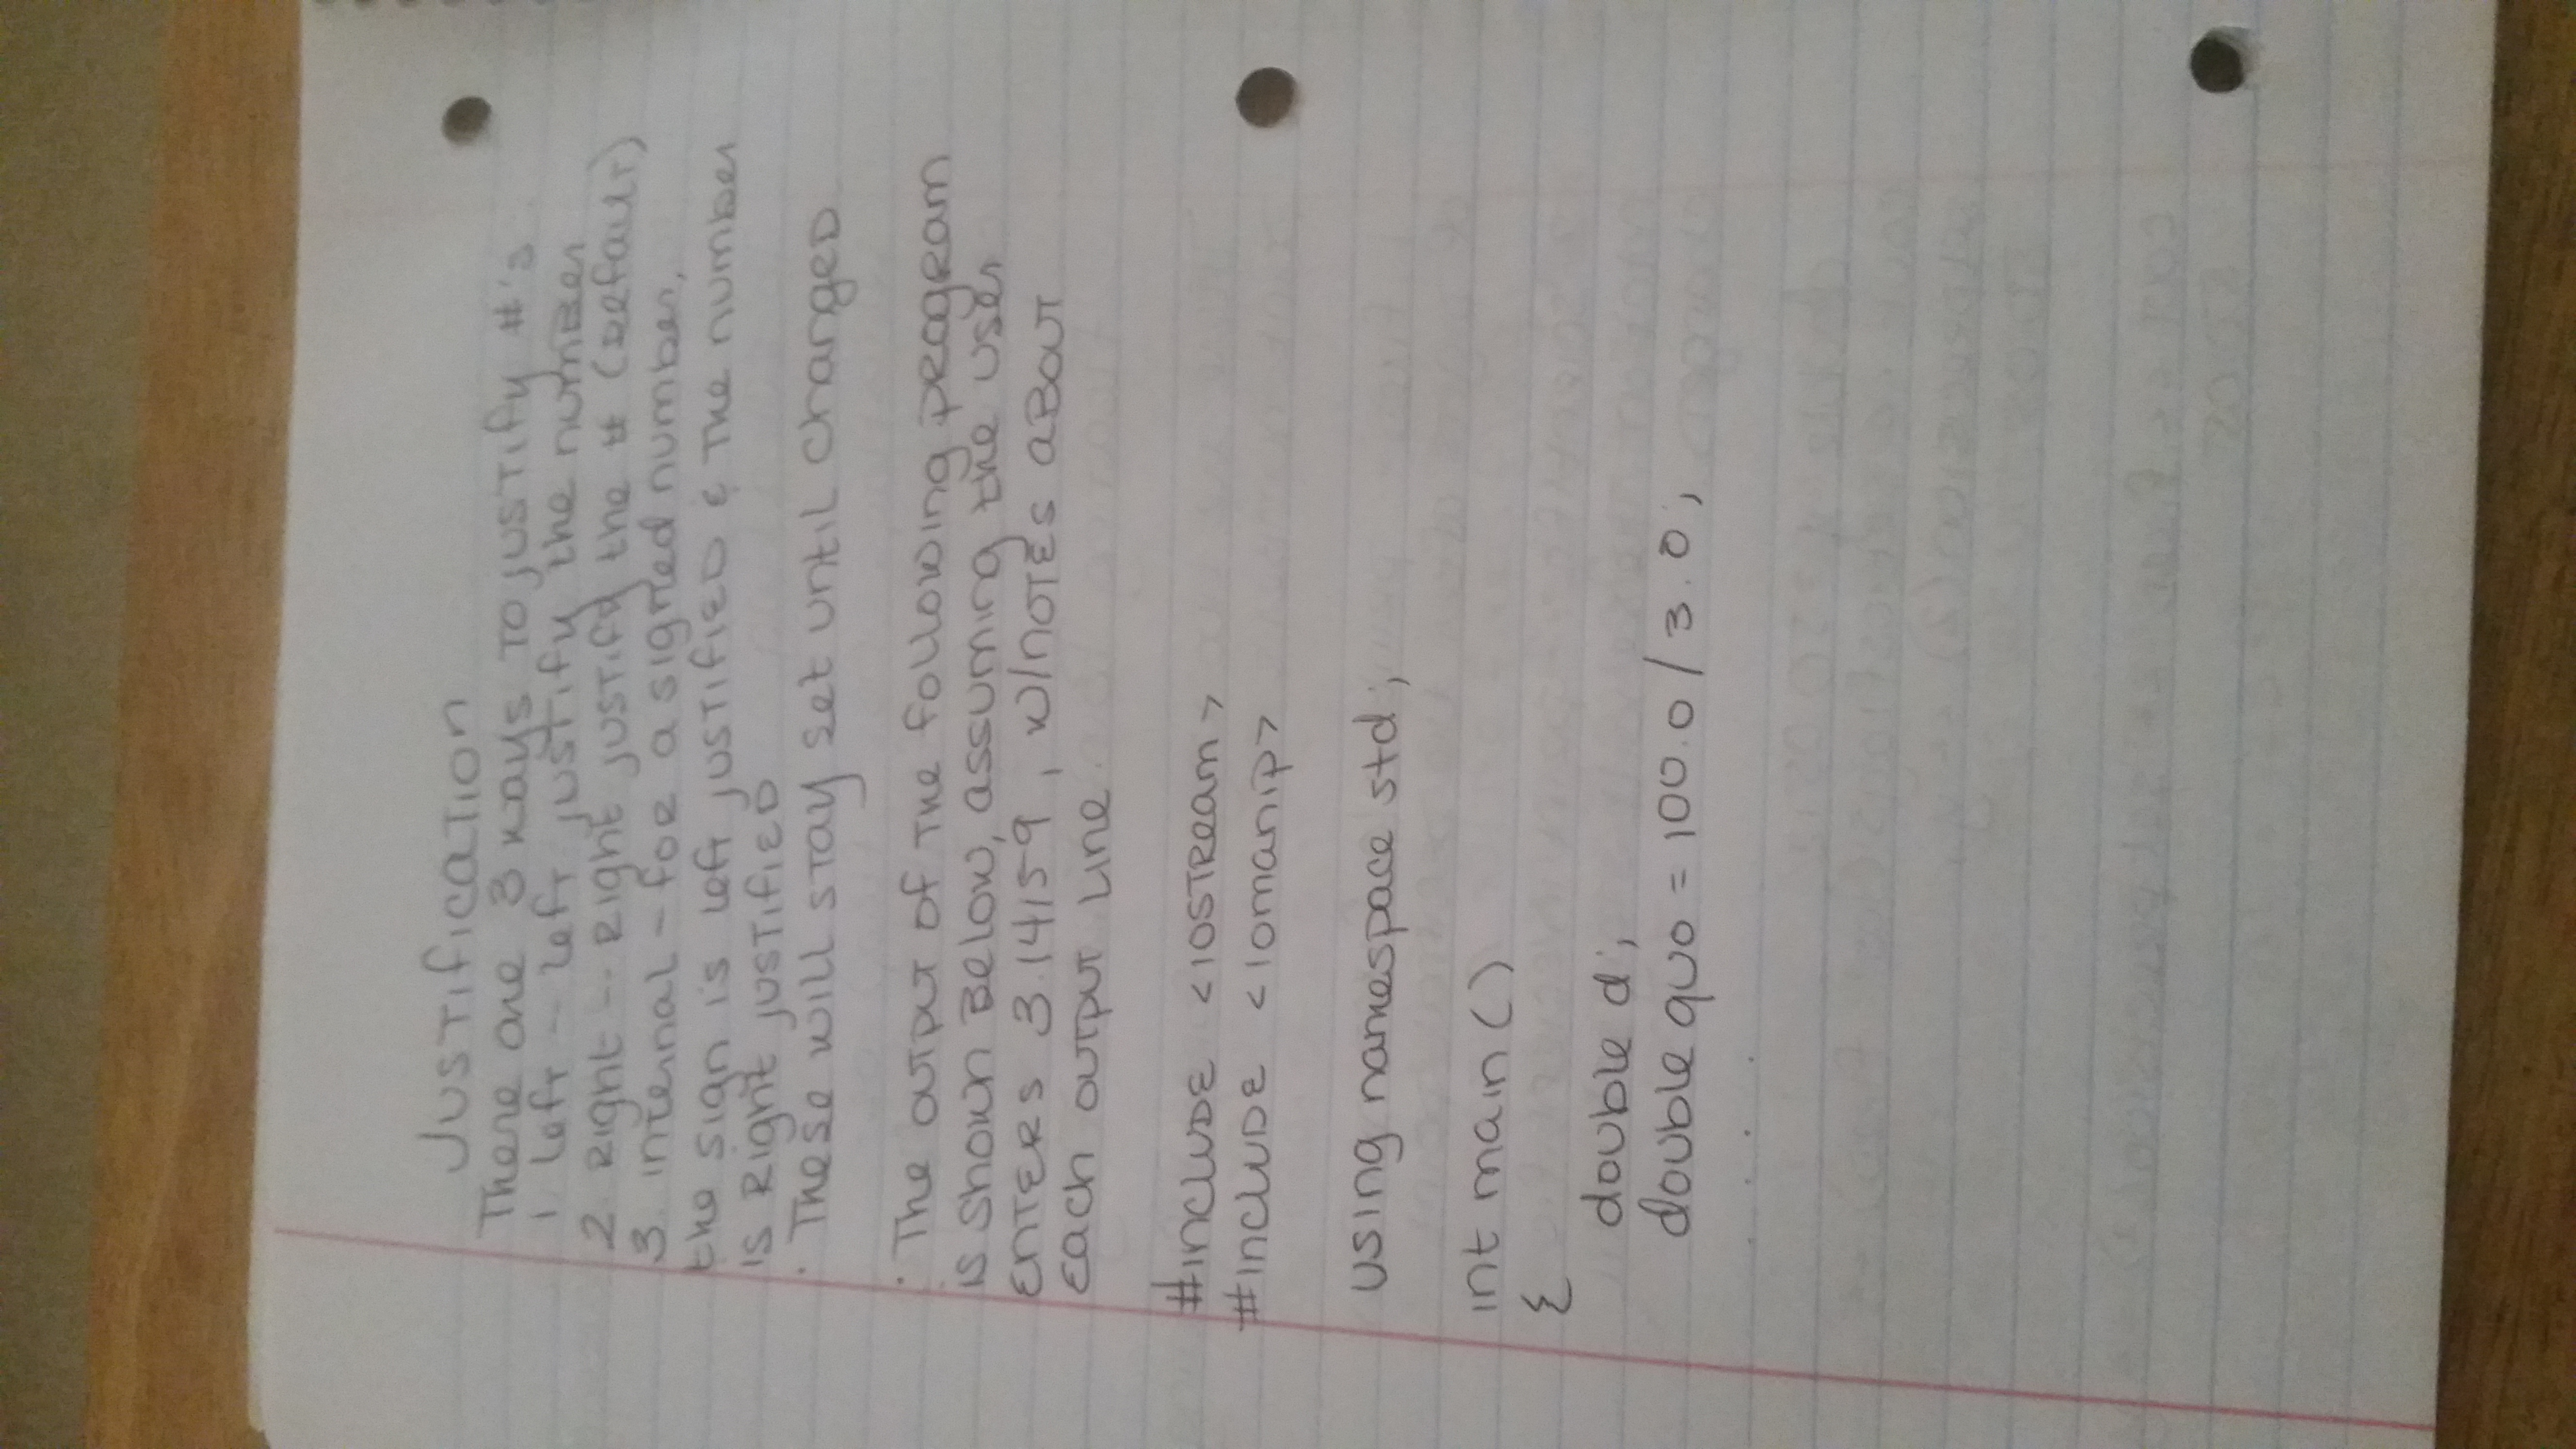 Justification
There are 3 ways to justify #'s
1 left -- left justify the number
2 Right -- Right justify the # (default)
3. internal - for a signed number,
the sign is left justified & the number
is Right justified
. These will stay set until changed
. The output of the following program
is shown Below, assuming the user
enters 3.14159, w/notes about
Each output line
#include <iostream>
#include <iomanip>
using namespace std;
int main()
{
double d;
double quo = 100.0/3.0;
. . .